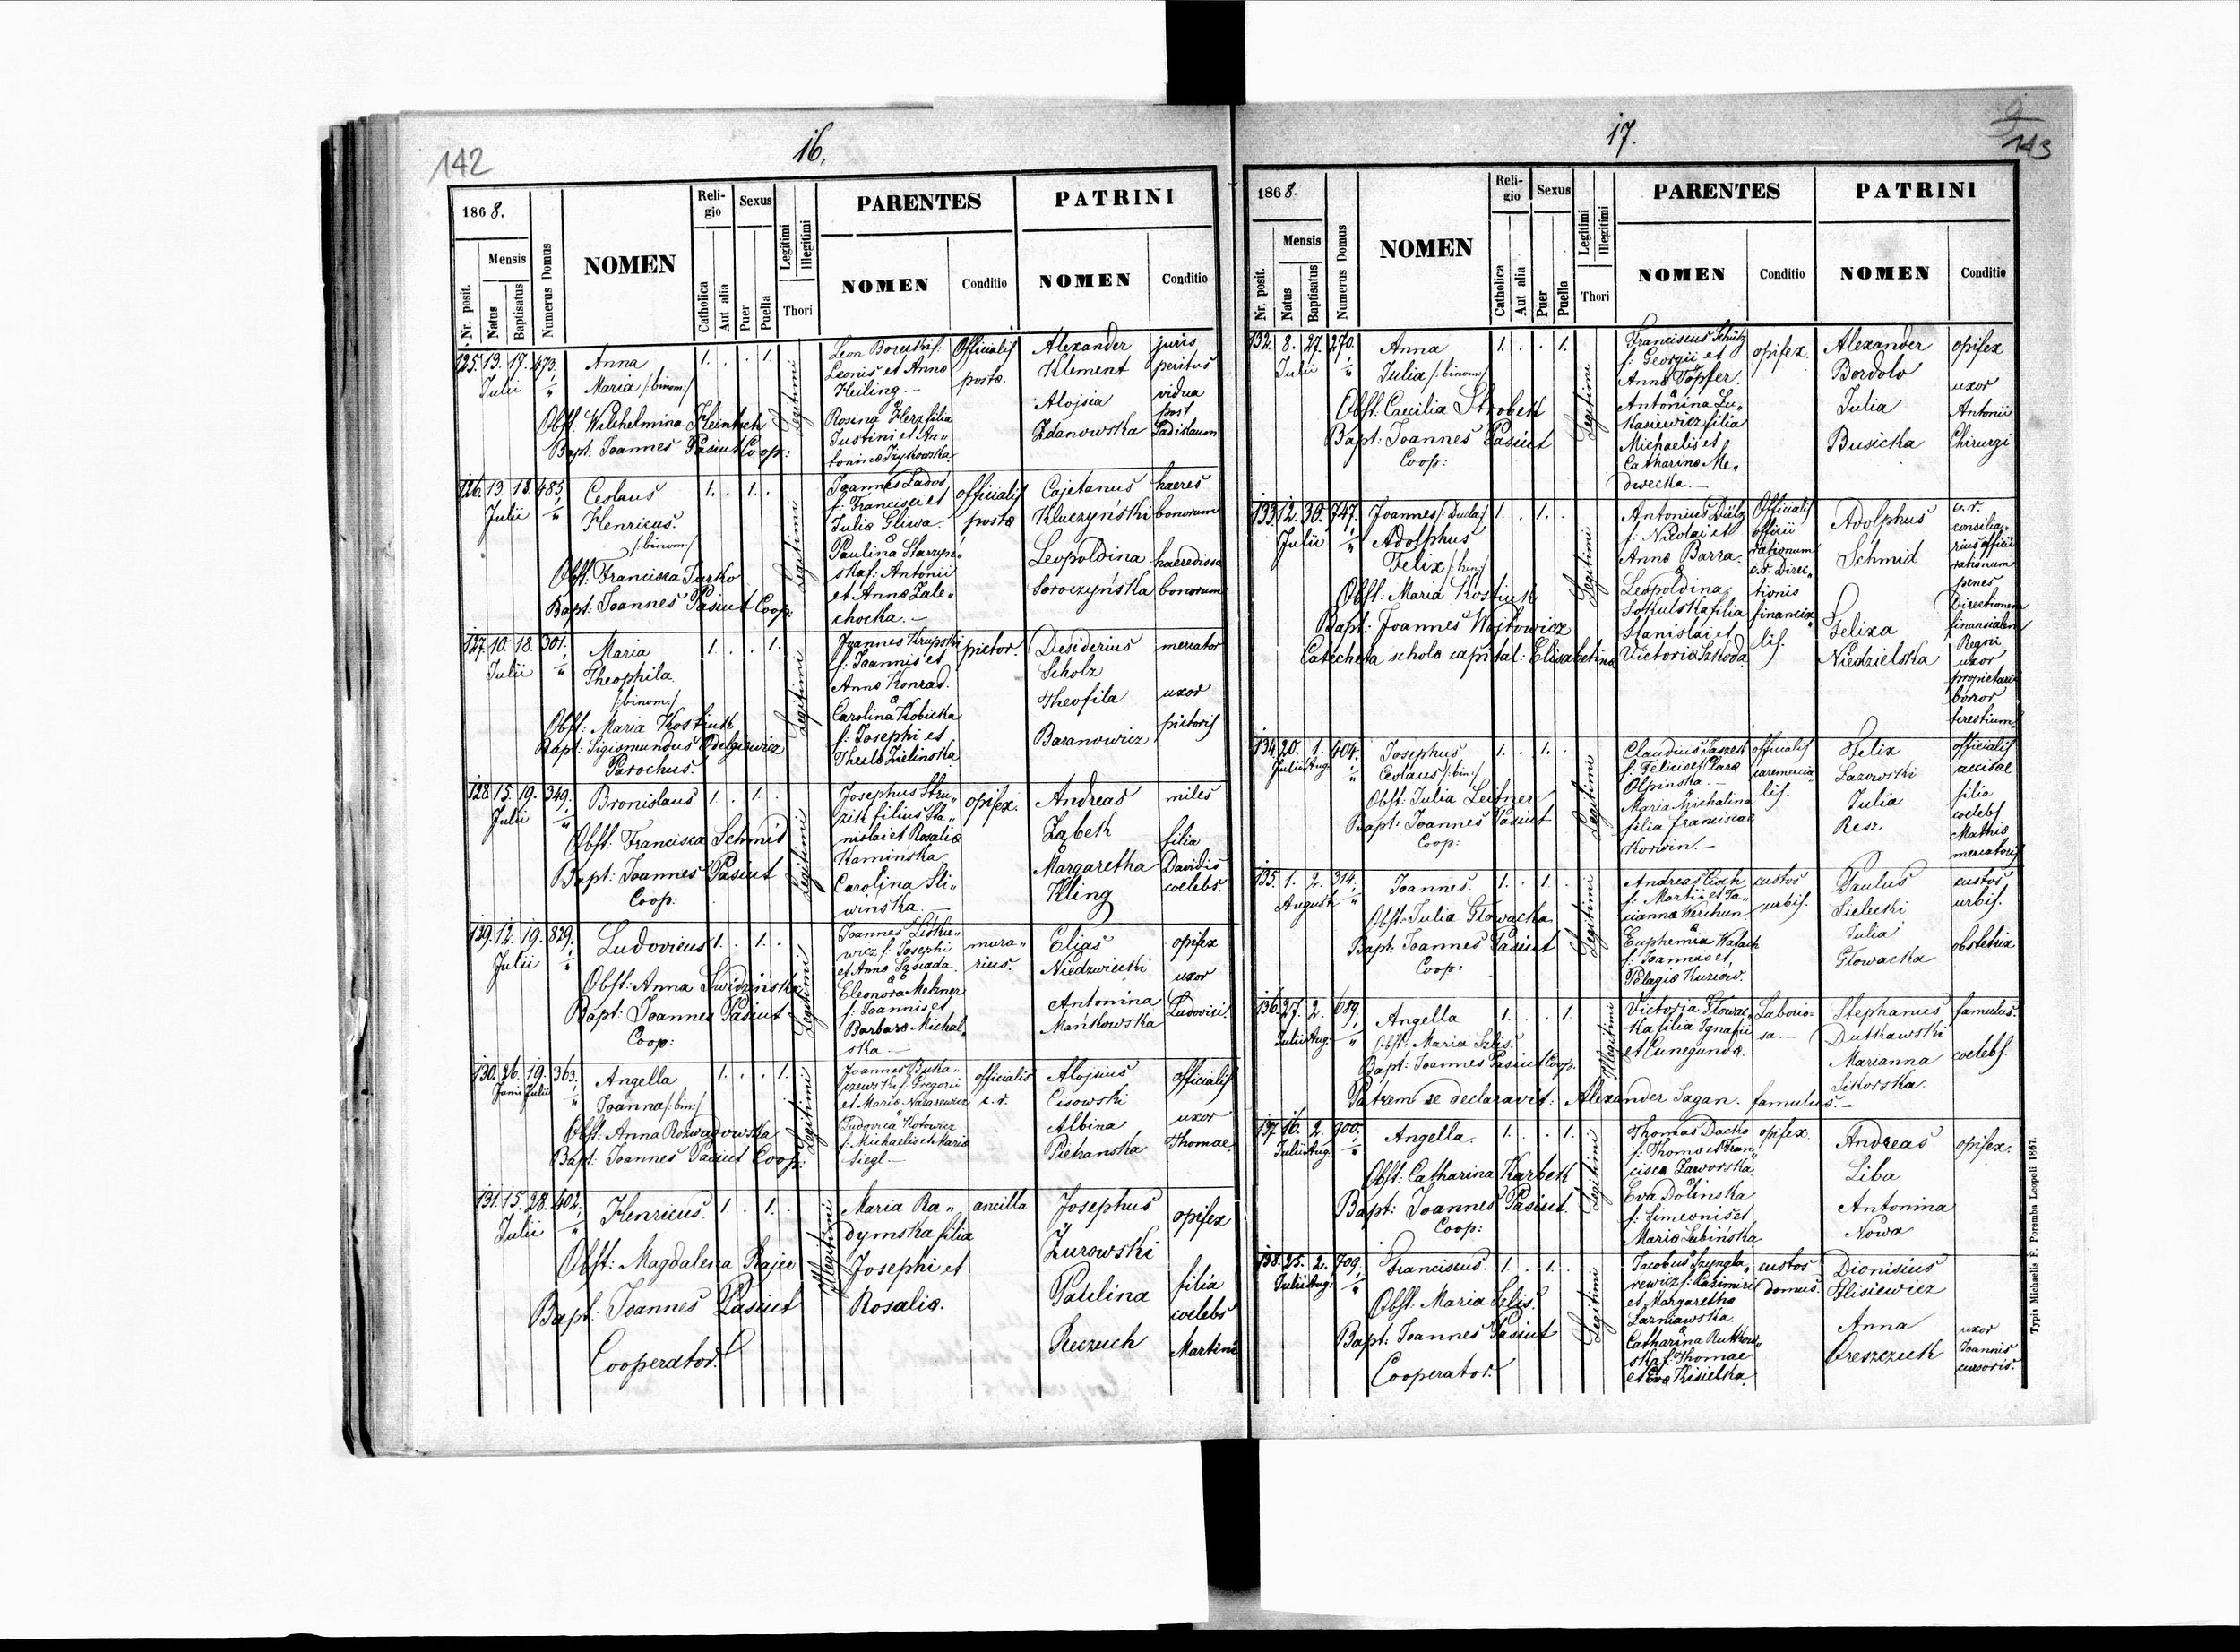 142
16.
1868.
Mensis
Nr. posit.
Natus
Baptisatus
Numerus Domus
NOMEN
Reli-
gio
Catholica
Aut alia
Sexus
Puer
Puella
Legitimi
Illegitimi
Thori
PARENTES
NOMEN
Conditio
PATRINI
NOMEN
Conditio
125. 13. 17. 473.
Julii
Anna
Maria /:binom:/
1. . . 1.
Obst: Wilchelmina Heintsch
Bapt: Joannes Pasiut Coop:
Legitimi
Leon f:
Leonis et Annæ
Heiling. —
Rosina Herz filia
Justini et An„
toninæ
Officialis
postæ.
Alexander
Klement
Alojsia
Zdanowska
juris
peritus
vidua
post
Ladislaum
126. 13. 18. 485.
Julii
Ceslaus
Henricus.
/:binom:/
1. . 1. .
Obst: Francisca Turko
Bapt: Joannes Pasiut Coop:
Legitimi
Joannes Ladoś
f: Francisci et
Juliæ Gliwa.
Paulina Starzyń„
ska f: Antonii
et Annæ Zale„
chocka. —
officialis
postæ
Cajetanus
Kluczyński
Leopoldina
Soroczyńska
haeres
bonorum
haeredissa
bonorum
127. 10. 18. 301.
Julii
Maria
Theophila
/:binom:/
1. . . 1.
Obst: Maria Kostiuk
Bapt: Sigismundus Odelgiewicz
Parochus.
Legitimi
Joannes Krupski
f: Joannis et
Annæ Konrad.
Carolina Kobicka
f: Josephi et
Zielinska
pictor.
Desiderius
Scholz
Theofila
Baranowicz
mercator
uxor
pictoris
128. 15. 19. 349.
Julii
Bronislaus.
1. . 1. .
Obst: Francisca Schmid
Bapt: Joannes Pasiut
Coop:
Legitimi
Josephus Stru„
zik filius Sta„
nislai et Rosaliæ
Kamińska
Carolina Sli„
winska. —
opifex.
Andreas
Ząbek
Margaretha
Kling
miles
filia
Davidis
coelebs.
129. 12. 19. 829.
Julii
Ludovicus
1. . 1. .
Obst: Anna Swidzińska
Bapt: Joannes Pasiut
Coop:
Legitimi
Joannes
wicz f: Josephi
et Annæ Sąsiada.
Eleonora Mexner
f: Joannis et
Barbaræ Michal„
ska —
mura„
rius.
Elias
Niedzwiecki
Antonina
Mańkowska
opifex
uxor
Ludovici.
130. 26. 19. 363.
Junii Julii
Angella
Joanna /:bin:/
1. . . 1.
Obst: Anna Rozwadowska
Bapt: Joannes Pasiut Coop:
Legitimi
Joannes Buka„
czewski f: Gregorii
et Mariæ Nazarewicz
Ludovica Kotowicz
f: Michaelis et Mariæ
Siegl —
officialis
c. r.
Alojsius
Cisowski
Albina
Piekanska
officialis
uxor
Thomae.
131. 15. 28. 402.
Julii
Henricus.
1. . 1. .
Obst: Magdalena
Bapt: Joannes Pasiut
Cooperator.
Illegitimi
Maria Ra„
dymska filia
Josephi et
Rosaliæ.
ancilla
Josephus
Żurowski
Paulina
Reczuch
opifex
filia
coelebs
Martini
17.
143
1868.
Mensis
Nr. posit.
Natus
Baptisatus
Numerus Domus
NOMEN
Reli-
gio
Catholica
Aut alia
Sexus
Puer
Puella
Legitimi
Illegitimi
Thori
PARENTES
NOMEN
Conditio
PATRINI
NOMEN
Conditio
132. 8. 27. 270.
Julii
Anna
Julia /:binom:/
1. . . 1.
Obst: Caecilia Strobek
Bapt: Joannes Pasiut
Coop:
Legitimi
Franciscus Schütz
f: Georgii et
Annæ Töpfer.
Antonina Łu„
kasiewicz filia
Michaelis et
Catharinæ Me„
dwecka. —
opifex.
Alexander
Bordolo
Julia
Busicka
opifex
uxor
Antonii
Chirurgi
133. 12. 30. 747.
Julii
Joannes /:Duda/
Adolphus
Felix /:bin:/
1. . 1. .
Obst: Maria Kostiuk
Bapt: Joannes Wojtowicz
Catecheta scholæ capital: Elisabetinæ
Legitimi
Antonius
f: Nicolai et
Annæ Barra.
Leopoldina
Sokulska filia
Stanislai et
Victoriæ Szkoda
Officialis
officii
rationum
c. r. Direc„
tionis
financia„
lis.
Adolphus
Schmid
Felixa
Niedzielska
c. r.
consilia„
rius officii
rationum
penes
Directionem
finansialem
Regni
uxor
propietarii
bonor
terestium
134. 20. 1. 404.
Julii Aug.
Josephus
Ceslaus /:bin:/
1. . 1. .
Obst: Julia Leitner
Bapt: Joannes Pasiut
Coop:
Legitimi
Claudius Taszek
f: Felicis et Claræ
Olpinska. —
Maria Michalina
filia franciscae
Korwin. —
officialis
caremercia„
lis.
Felix
Lazowski
Julia
Resz
officialis
accisae
filia
coelebs
Mathiæ
mercatoris
135. 1. 2. 314.
Augusti
Joannes.
1. . 1. .
Obst: Julia Głowacka.
Bapt: Joannes Pasiut
Coop:
Legitimi
Andreas Cioch
f: Martii et Ta„
cianna Kerchun.
Euphemia Kasach
f: Joannis et
Pelagiæ Kuziów.
custos
urbis.
Paulus
Sielecki
Julia
Głowacka
custos
urbis.
obstetrix
136. 27. 2. 689.
Julii Aug.
Angella
1. . . 1.
Obst: Maria Szlis.
Bapt: Joannes Pasiut Coop.
Illegitimi
Victoria Głowac„
ka filia Ignatii
et Cunegundæ.
Laborio„
sa. —
Stephanus
Dutkawski
Marianna
Sikorska.
famulus.
coelebs.
Patrem se declaravit: Alexander Sagan. famulus. —
137. 16. 2. 900.
Julii Aug.
Angella.
1. . . 1.
Obst: Catharina Karbek
Bapt: Joannes Pasiut.
Coop:
Legitimi
Thomas Dacko
f: Thomæ et Fran„
cisca Zaworska.
Eva Dolinska
f: Simeonis et
Mariæ Lubińska
opifex.
Andreas
Liba
Antonina
Nowa
opifex.
138. 25. 2. 709.
Julii Aug.
Franciscus.
1. . 1. .
Obst: Maria Selis.
Bapt: Joannes Pasiut
Cooperator.
Legitimi
Jacobus Szyngla„
rewicz f: Casimiri
et Margarethæ
Lazniawska.
Catharina Rutkow„
ska f: Thomae
et Eva Kisielka.
custos
domus.
Dionisius
Elisiewicz
Anna
Oreszczuk
uxor
Joannis
cursoris.
Typis Michaelis F. Poremba Leopoli 1867.